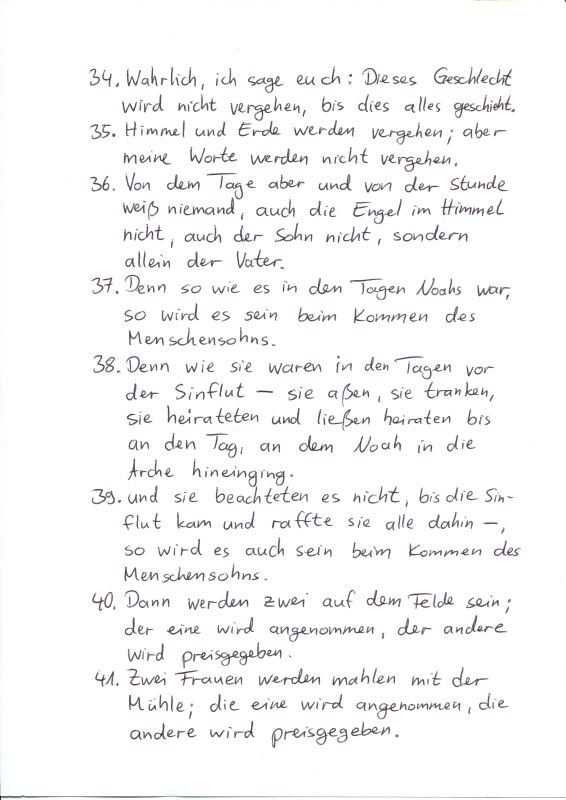 34. Wahrlich, ich sage euch: Dieses Geschlecht
wird nicht vergehen, bis dies alles geschieht.
35. Himmel und Erde werden vergehen; aber
meine Worte werden nicht vergehen.
36. Von dem Tage aber und von der Stunde
weiß niemand, auch die Engel im Himmel
nicht, auch der Sohn nicht, sondern
allein der Vater.
37. Denn so wie es in den Tagen Noahs war,
so wird es sein beim Kommen des
Menschensohns.
38. Denn wie sie waren in den Tagen vor
der Sinflut – sie aßen, sie tranken,
sie heirateten und ließen heiraten bis
an den Tag, an dem Noah in die
Arche hineinging.
39. und sie beachteten es nicht, bis die Sin-
flut kam und raffte sie alle dahin –,
so wird es auch sein beim Kommen des
Menschensohns.
40. Dann werden zwei auf dem Felde sein;
der eine wird angenommen, der andere
wird preisgegeben.
41. Zwei Frauen werden mahlen mit der
Mühle; die eine wird angenommen, die
andere wird preisgegeben.